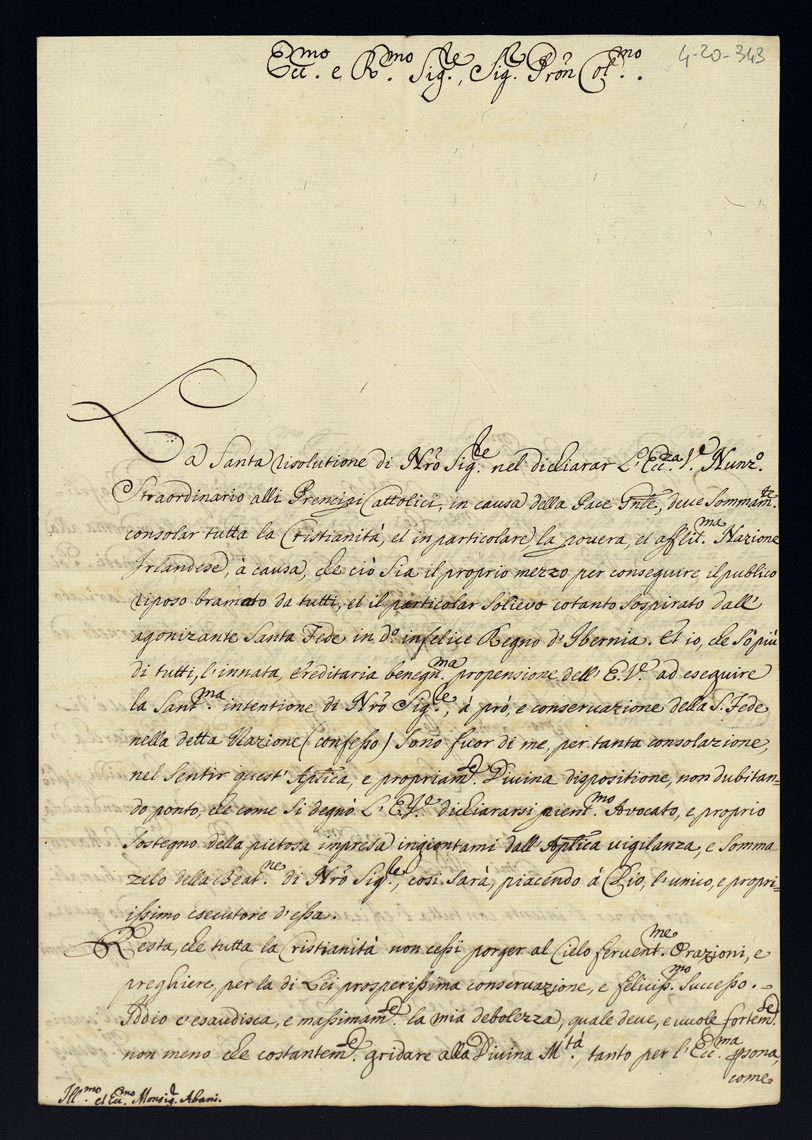 Ecc.mo e R.mo Sig.re, Sig.r Pron Col.mo.
4-20-343
La Santa risolutione di Nrō Sig.re nel dichiarar L'Ecc.za V.a Nunz.o
Straordinario alli Prencipi Cattolici, in causa della Pace Gnle, deve sommam.te
consolar tutta la Cristianità, et in particolare la povera, et afflit.ma Nazione
Irlandese, à causa, che ciò sia il proprio mezzo per conseguire il publico
riposo bramato da tutti, et il particolar solievo cotanto sospirato dall'
agonizante Santa Fede in d.o infelice Regno d'Ibernia. Et io, che sò più
di tutti, l'innata, ereditaria benegn.ma propensione dell' E.V.a ad eseguire
la Sant.ma intentione di Nrō Sig.re, à prò, e conservazione della S. Fede
nella detta Nazione (confesso) sono fuor di me, per tanta consolazione,
nel sentir quest' Aplica, e propriam.e Divina dispositione, non dubitan=
do ponto, che come si degnò L'E.V.a dichiararsi pient.mo Avocato, e proprio
sostegno della pietosa impresa ingiontami dall'Aplica vigilanza, e somma
zelo della Beat.ne di Nrō Sig.re, così sarà, piacendo à Dio, l'unico, e propri=
issimo esecutore d'essa.
Resta, che tutta la Cristianità non cessi porger al Cielo fervent.me Orazioni, e
preghiere, per la di Lei prosperissima conservazione, e feliciss.mo Successo.-
Iddio c'esaudisca, e massimam.e la mia debolezza, quale deve, e vuole fortem.e
non meno che costantem.e gridare alla Divina M.tà, tanto per l'Ecc.ma psona,
come
Ill.mo et Ecc.mo Monsig.r Abani.